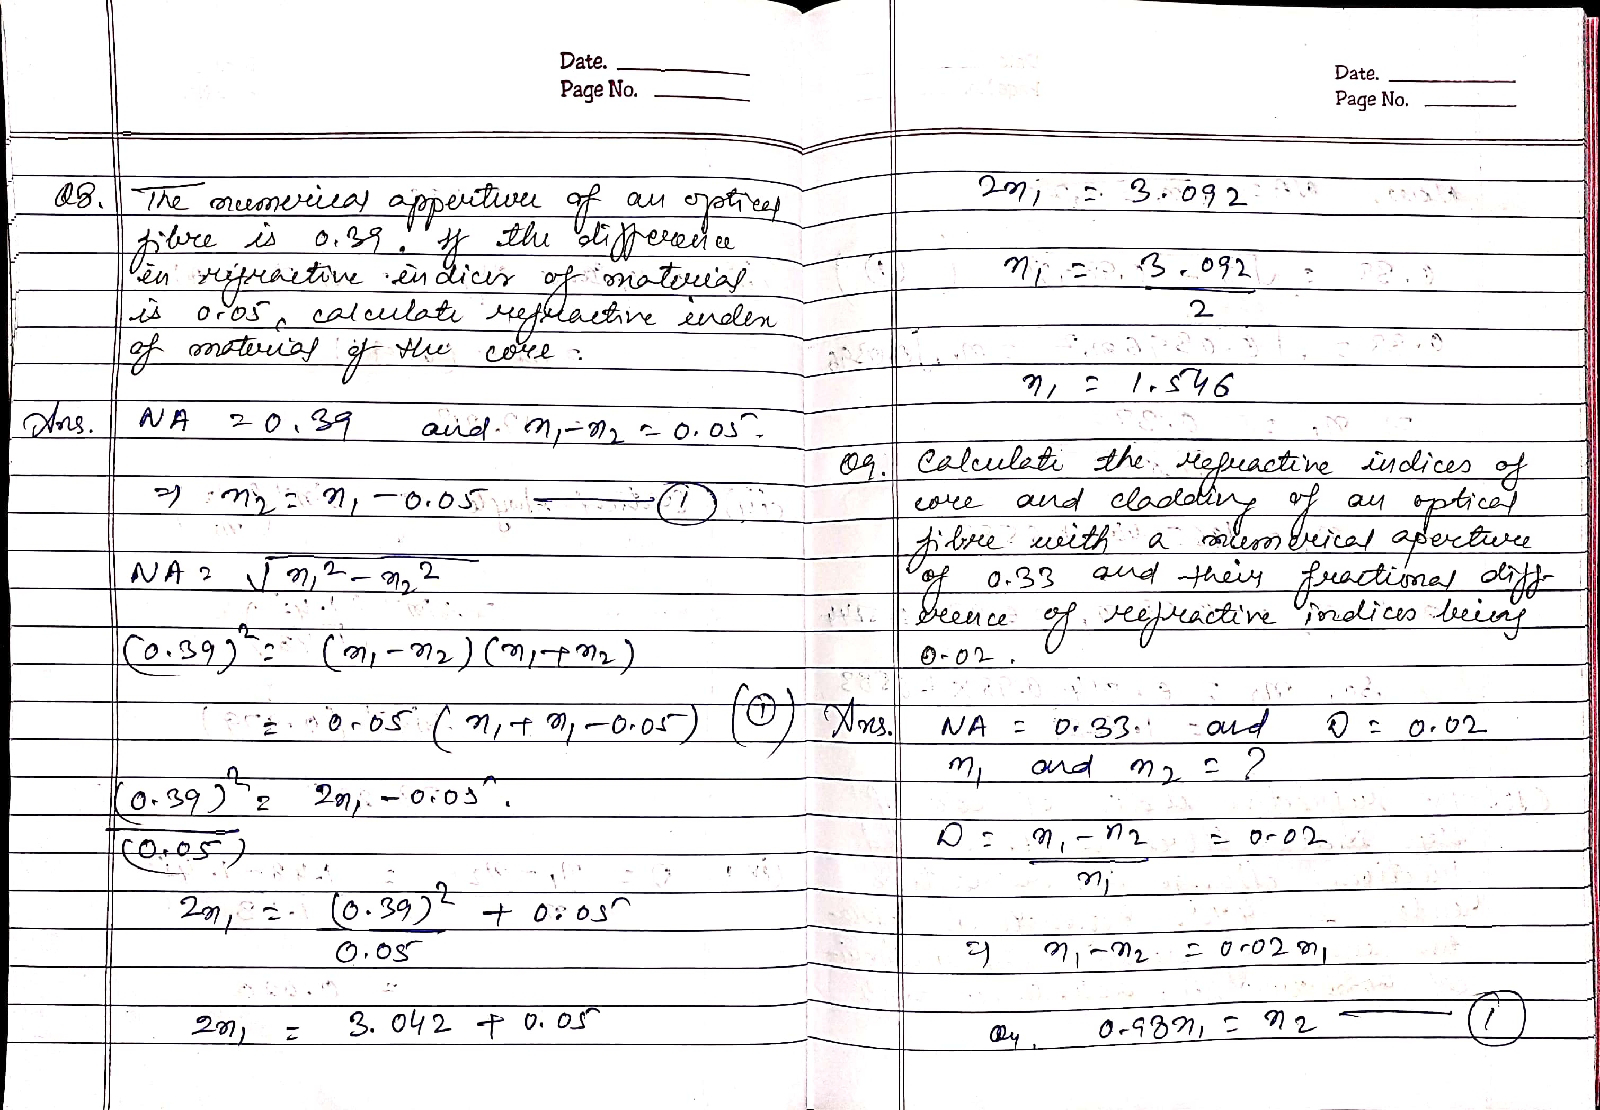 Date.
Page No.
Q8. The numerical apperture of an optical
fibre is 0.39. If the difference
in refractive indices of material
is 0.05, calculate refractive index
of material of the core.
Ans. NA = 0.39 and n₁-n₂ = 0.05.
⇒ n₂ = n₁ - 0.05 ①
NA = √n₁² - n₂²
(0.39)² = (n₁-n₂)(n₁+n₂)
= 0.05 (n₁+n₁-0.05) (①)
(0.39)² = 2n₁ - 0.05.
(0.05)
2n₁ = (0.39)² + 0.05
0.05
2n₁ = 3.042 + 0.05
Date.
Page No.
2n₁ = 3.092
n₁ = 3.092
2
n₁ = 1.546
Q9. Calculate the refractive indices of
core and cladding of an optical
fibre with a numerical aperture
of 0.33 and their fractional diff-
erence of refractive indices being
0.02.
Ans. NA = 0.33 and D = 0.02
n₁ and n₂ = ?
D = n₁-n₂ = 0.02
n₁
⇒ n₁-n₂ = 0.02 n₁
or, 0.98n₁ = n₂ ①